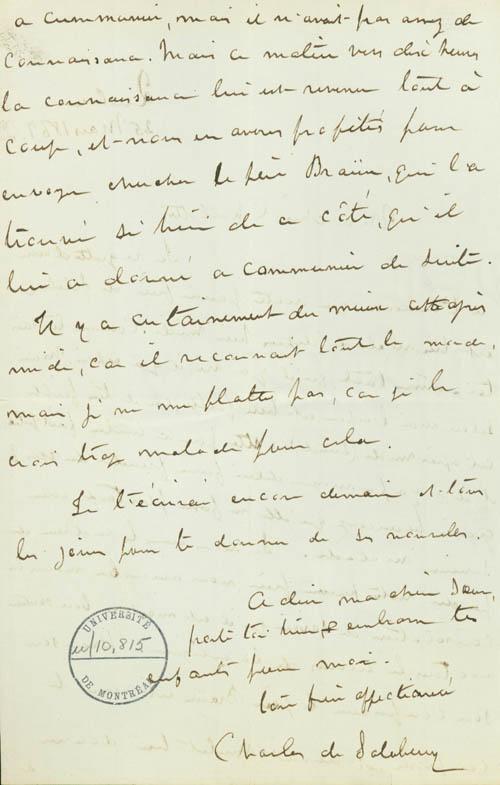 a communier, mais il n'avait pas assez de
connaissance. Mais ce matin vers dix heures
la connaissance lui est revenue tout à
coup, et nous en avons profités pour
envoyer chercher le père Braün, qui l'a
trouvé si bien de ce côté, qu'il
lui a donné a communier de suite.
Il y a certainement du mieux cette après
midi, car il reconnait tout le monde,
mais je ne me flatte pas, car je le
crois trop malade pour cela.
Je t'écrirai encore demain et tous
les jours pour te donner de ses nouvelles.
Adieu ma chère Soeur,
porte toi bien & embrasse tes
enfants pour moi.
Ton frère affectionné
Charles de Salaberry
UNIVERSITÉ
u/10,815
DE MONTRÉAL